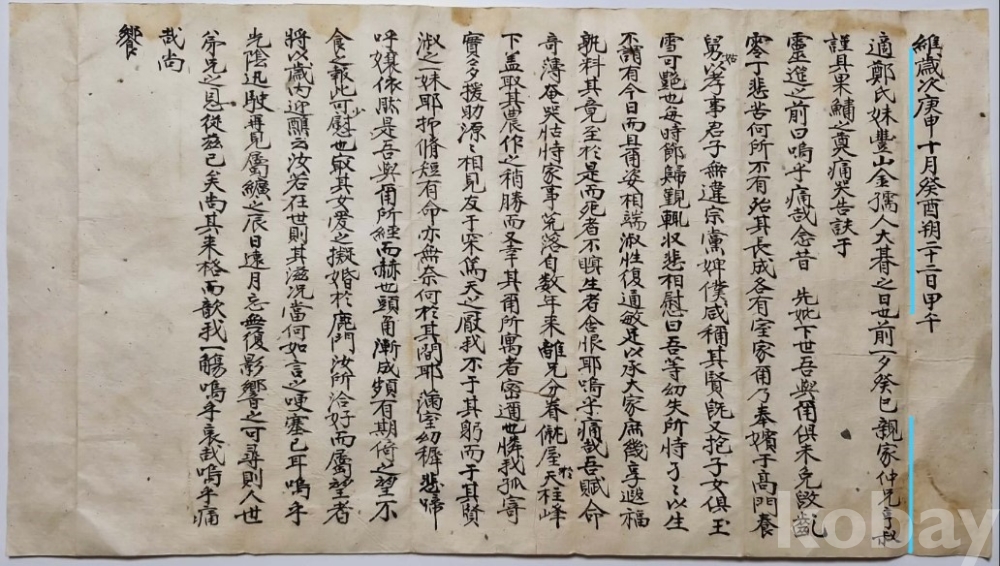 維歲次庚申十月癸酉朔二十二日甲午
適鄭氏妹豐山金孺人大朞之日也前一夕癸巳親家仲兄亨叔
謹具果鱐之奠痛哭告訣于
靈進之前曰嗚乎痛哉念昔 先妣下世吾與爾俱未免毀齒
零丁悲苦何所不有殆其長成各有室家爾乃奉嬪于高門養
舅姑以孝事君子無違宗黨婢僕咸稱其賢旣又抱子女俱玉
雪可艶也每時節歸覲輒收悲相慰曰吾等幼失所恃了了以生
不謂有今日而且爾姿相端淑性復通敏足以承大家庶幾享遐福
孰料其竟至於是而死者不瞑生者含恨耶嗚乎痛哉吾賦命
奇薄奄哭怙恃家事荒落自数年来離兄分眷僦屋於天柱峰
下盖取其農作之稍勝而又幸其爾所寓者密邇也憐我孤寄
實多援助源源相見友于深篤天之厭我不于其躬而于其賢
淑之妹耶抑脩短有命亦無奈何於其間耶滿室幼穉悲啼
呼孃依然是吾與爾所經而赫也頭角漸成頗有期倚之望不
食之報此可少慰也最其女爰之擬婚於鹿門汝所洽好而屬望者
將以歲内迎醮云汝若在世則其滋况當何如言之哽塞已耳嗚乎
光陰迅駛再見屬纊之辰日遠月忘無復影響之可尋則人世
弟兄之恩從玆已矣尚其来格而歆我一觴嗚乎哀哉嗚乎痛
哉尚
饗
kobay